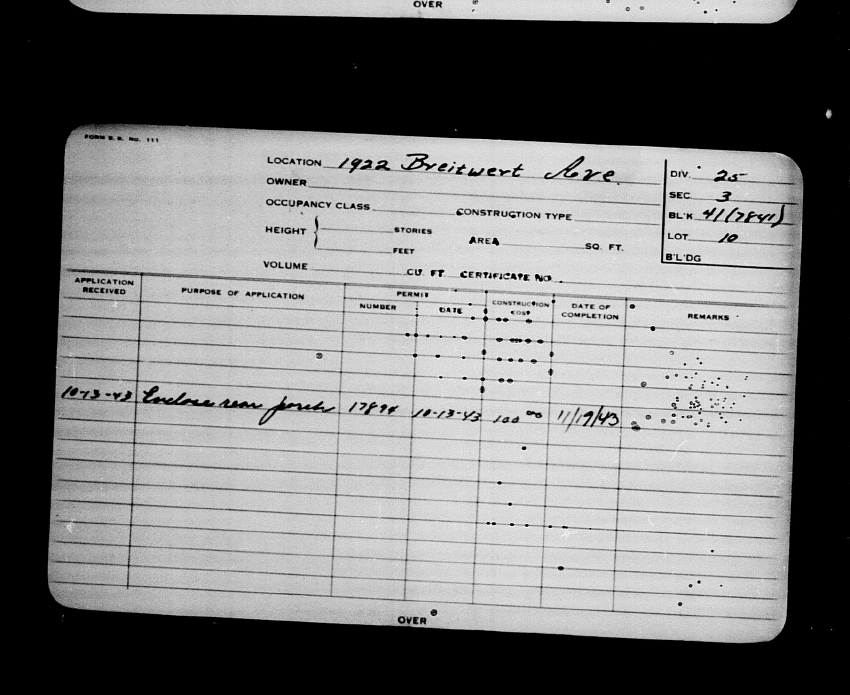 OVER
FORM B. B. NO. 111
LOCATION 1922 Breitwert Ave.
DIV. 25
OWNER
SEC. 3
OCCUPANCY CLASS CONSTRUCTION TYPE
BL'K 41(7841)
HEIGHT STORIES
AREA SQ. FT.
LOT 10
FEET
B'L'DG
VOLUME CU. FT. CERTIFICATE NO.
APPLICATION RECEIVED PURPOSE OF APPLICATION PERMIT NUMBER DATE CONSTRUCTION COST DATE OF COMPLETION REMARKS
10-13-43 Enclose rear porch 17894 10-13-43 100 00 11/19/43
OVER